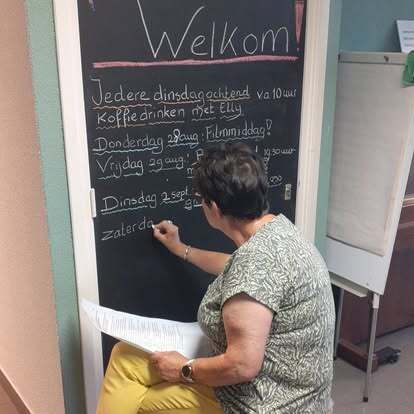 Welkom!
Jedere dinsdagochtend v.a. 10 uur
Koffiedrinken met Elly.
Donderdag 28 aug: Filmmiddag!
Vrijdag 29 aug:
Dinsdag 2 sept.
Zaterda